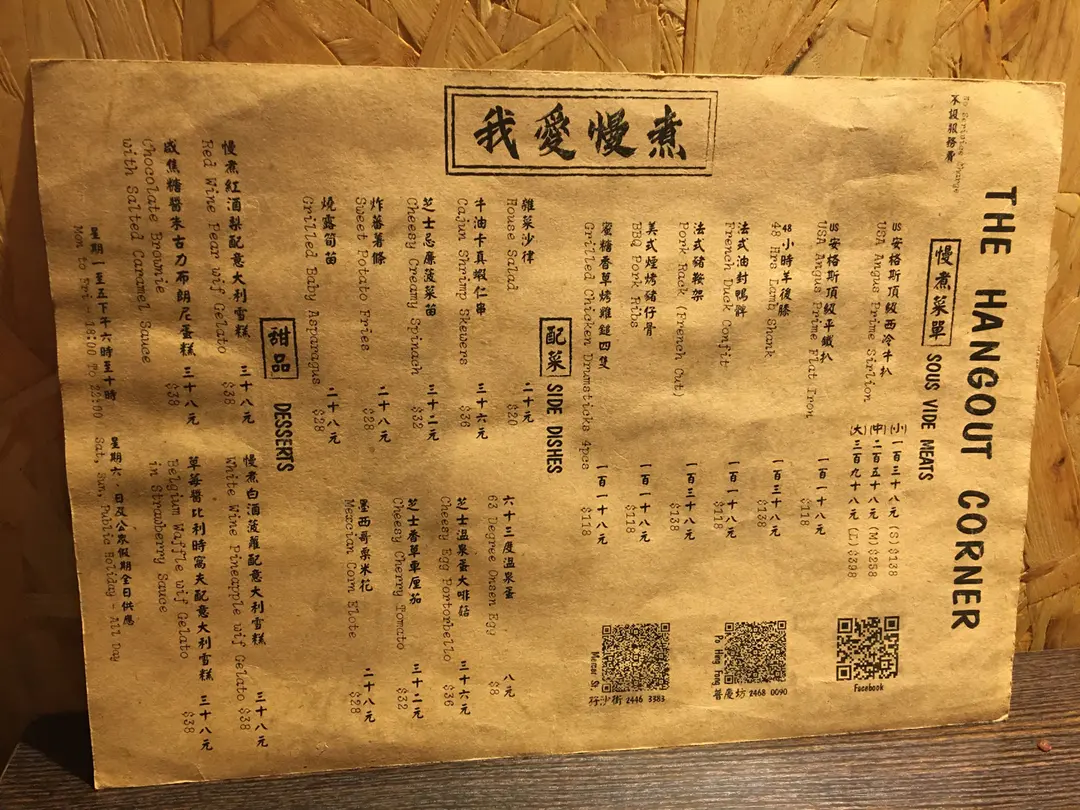 THE HANGOUT CORNER
No Service Charge
不設服務費
慢煮菜單 SOUS VIDE MEATS
US安格斯頂級西冷牛扒 (小) 一百三十八元 (S) $138
USA Angus Prime Sirlion (中) 二百五十八元 (M) $258
(大) 三百九十八元 (L) $398
US安格斯頂級平鐵扒 一百一十八元
USA Angus Prime Flat Iron $118
48小時羊後膝 一百三十八元
48 Hrs Lamb Shank $138
法式油封鴨髀 一百一十八元
French Duck Confit $118
法式豬鞍架 一百三十八元
Pork Rack (French Cut) $138
美式煙烤豬仔骨 一百一十八元
BBQ Pork Ribs $118
蜜糖香草烤雞鎚四隻 一百一十八元
Grilled Chicken Drumsticks 4pcs $118
Facebook
Po Hing Fong
普慶坊 2468 0090
Mercer St.
孖沙街 2446 3383
我愛慢煮
配菜 SIDE DISHES
雜菜沙律 二十元
House Salad $20
牛油卡真蝦仁串 三十六元
Cajun Shrimp Skewers $36
芝士忌廉菠菜苗 三十二元
Cheesy Creamy Spinach $32
炸蕃薯條 二十八元
Sweet Potato Fries $28
燒露筍苗 二十八元
Grilled Baby Asparagus $28
六十三度溫泉蛋 八元
63 Degree Onsen Egg $8
芝士溫泉蛋大啡菇 三十六元
Cheesy Egg Portorbello $36
芝士香草車厘茄 三十二元
Cheesy Cherry Tomato $32
墨西哥粟米花 二十八元
Mexcian Corn Elote $28
甜品 DESSERTS
慢煮紅酒梨配意大利雪糕 三十八元
Red Wine Pear wif Gelato $38
咸焦糖醬朱古力布朗尼蛋糕 三十八元
Chocolate Brownie $38
with Salted Caramel Sauce
慢煮白酒菠蘿配意大利雪糕 三十八元
White Wine Pineapple wif Gelato $38
草莓醬比利時窩夫配意大利雪糕 三十八元
Belgium Waffle wif Gelato $38
in Strawberry Sauce
星期一至五下午六時至十時
Mon To Fri - 18:00 To 22:00
星期六、日及公眾假期全日供應
Sat, Sun, Public Holiday - All Day